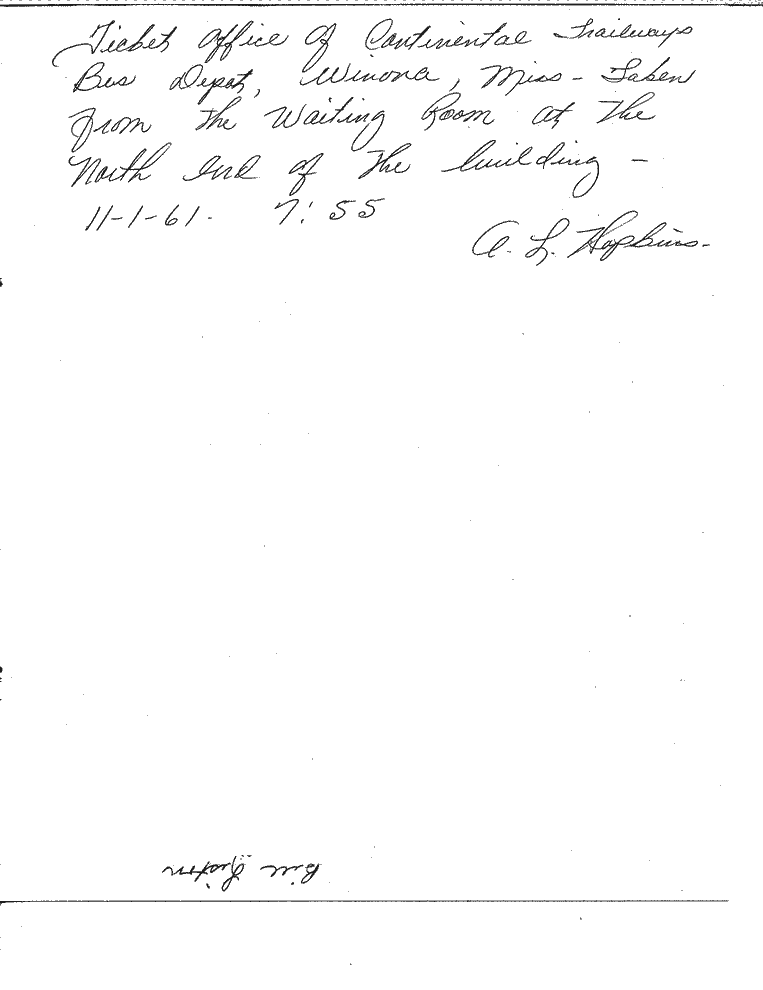 Ticket office of Continental Trailways
Bus Depot, Winona, Miss - Taken
From The Waiting Room at The
North End of The building -
11-1-61. 7:55
A. L. Hopkins.
Bill